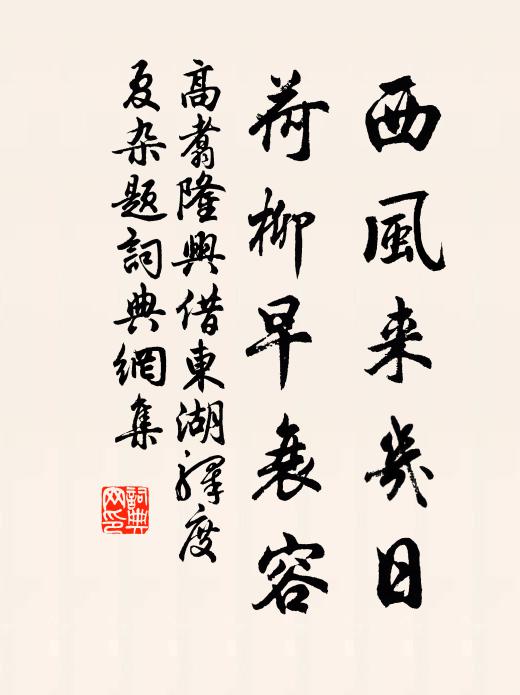 西風来幾日
荷柳早衰容
高翥隆興借東湖驛度
夏杂题詞典網集
詞典网印